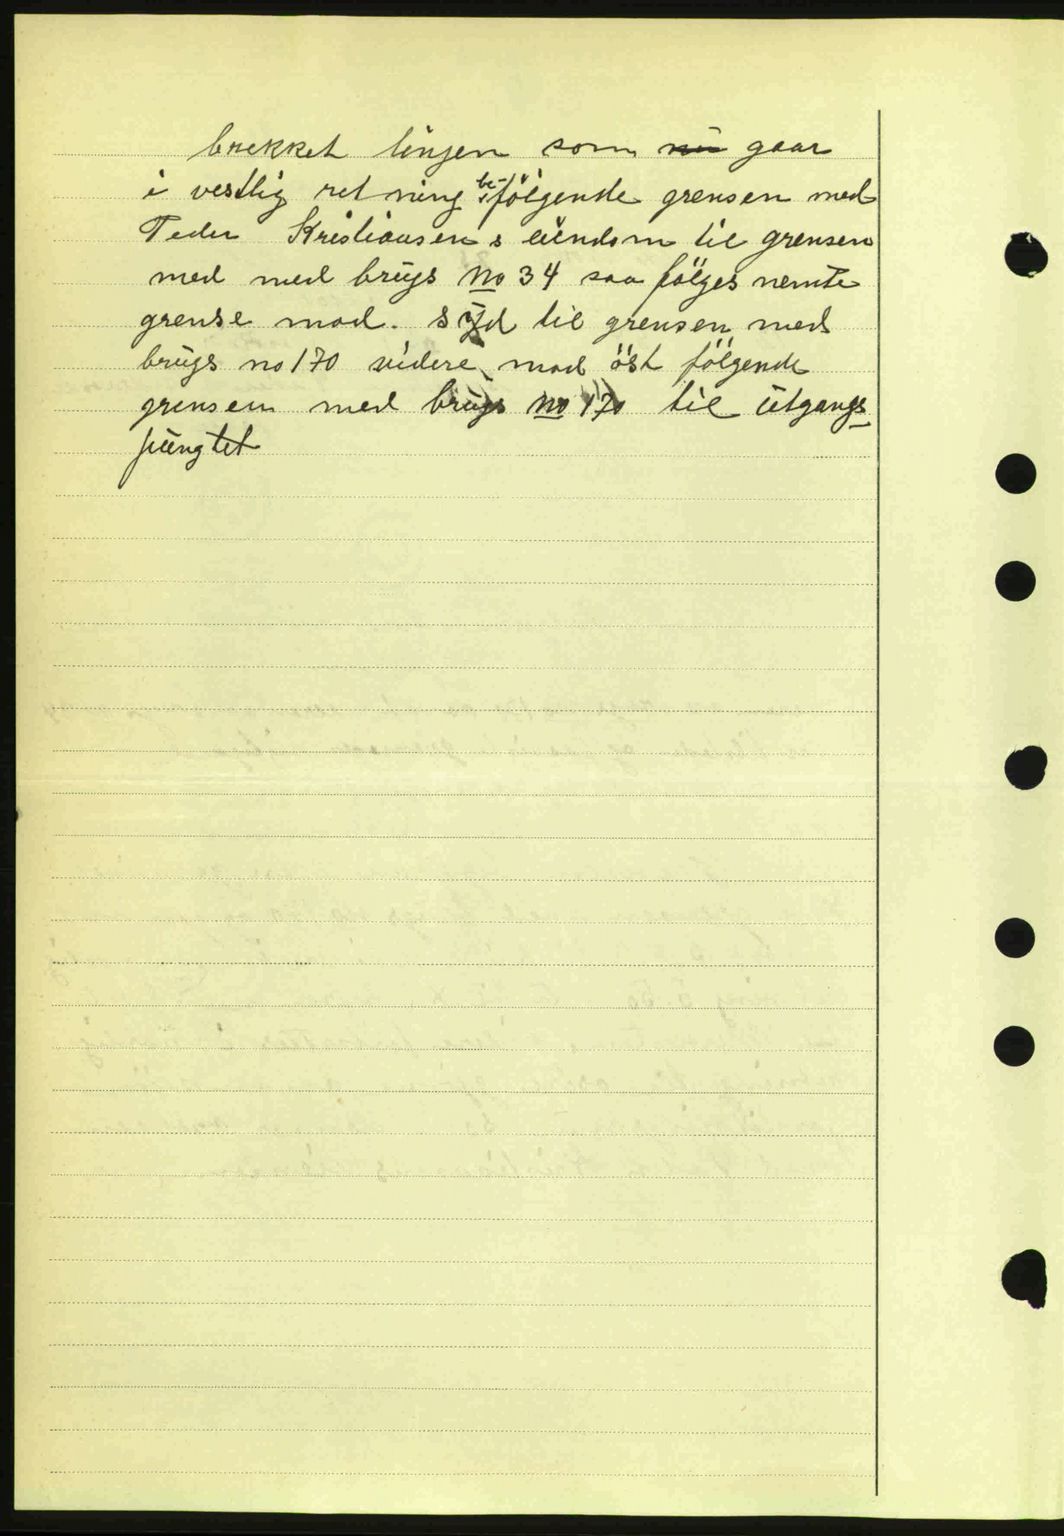 brekket linjen som nu gaar
i vestlig ret ning be- følgende grensen med
Peder Kristiansens eiendom til grensen
med med brugs no 34 saa følges nemte
grense mod. syd til grensen med
brugs no 170 videre mod öst følgende
grensen med brugs no 170 til utgangs
pungtet